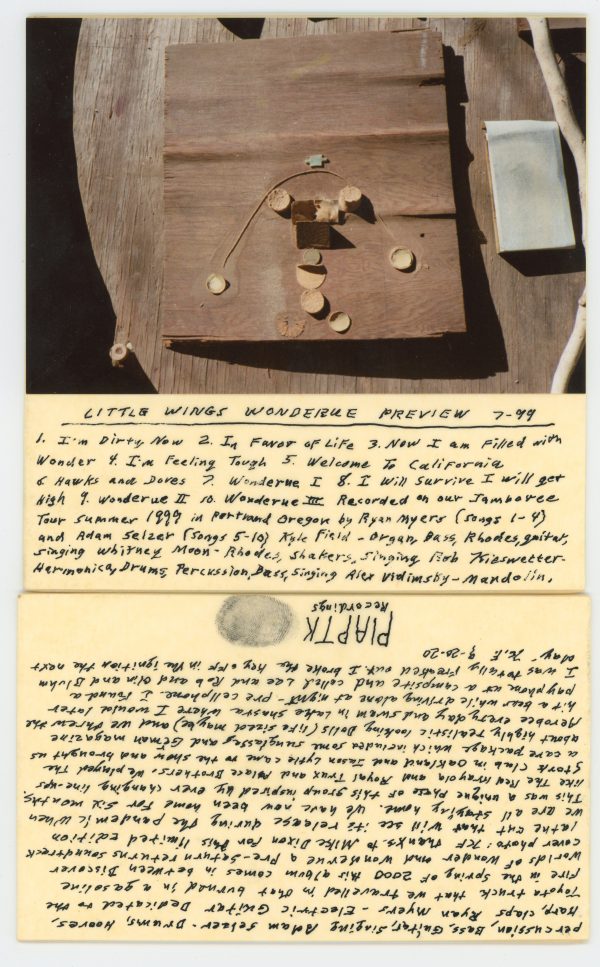 LITTLE WINGS WONDERUE PREVIEW 7-99
1. I'm Dirty Now 2. In Favor of Life 3. Now I am Filled with
Wonder 4. I'm Feeling Tough 5. Welcome To California
6 Hawks and Doves 7. Wonderue I 8. I Will Survive I will get
High 9. Wonderue II 10. Wonderue III Recorded on our Jamboree
Tour Summer 1999 in Portland Oregon by Ryan Myers (songs 1-4)
and Adam Selzer (songs 5-10) Kyle Field - Organ, Bass, Rhodes, guitar,
singing Whitney Moon - Rhodes, Shakers, Singing Rob Kieswetter-
Harmonica, Drums, Percussion, Bass, Singing Alex Vidimsby - Mandolin,
percussion, Bass, Guitar, Singing Adam Selzer - Drums, Hooves,
Harp, claps Ryan Myers - Electric Guitar Dedicated to the
Toyota truck that we travelled in that burned in a gasoline
fire in the Spring of 2000 this album comes in between Discover
Worlds of Wonder and Wonderue a Pre-Saturn returns soundtrack
cover photo: K.F. thanks to Mike Dixon for this limited edition
lathe cut that will see its release during the pandemic when
we are all staying home. We have now been home for six months,
This was a unique phase of this group inspired by ever changing line-ups
like The Red Krayola and Royal Trux and Palace Brothers. We played The
Stork club in Oakland and Jason Lytle came to the show and brought us
a care package which included some sunglasses and German magazine
about highly realistic looking Dolls (life sized maybe) and we threw the
Aerobee every day and swam in Lake Shasta where I would later
hit a bear while driving alone at night - pre-cellphone I found a
payphone at a campsite and called Lee and Rob and Bluhm
I was totally freaked out I broke the key off in the ignition the next
day K.F. 9-20-20
PIAPTK
Recordings